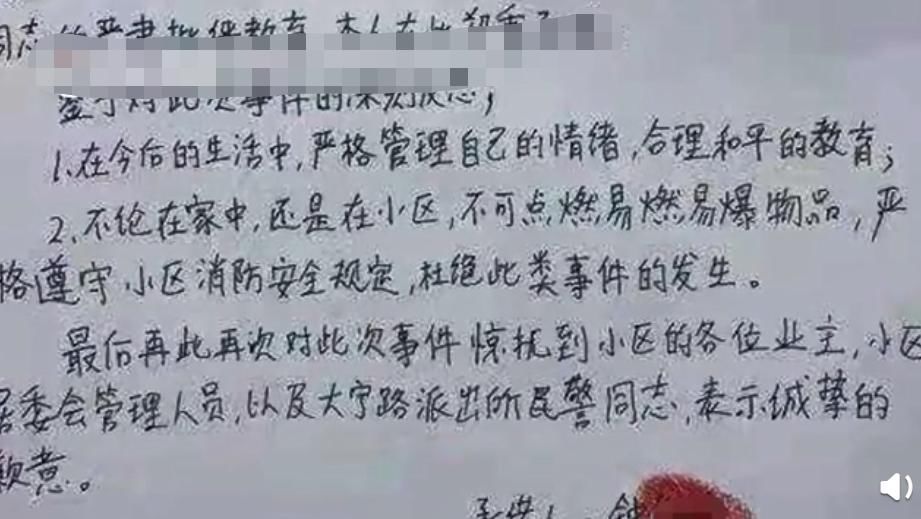 同志的严肃批评教育,本人在此郑重
鉴于对此次事件的深刻反思;
1.在今后的生活中,严格管理自己的情绪,合理和平的教育;
2.不论在家中,还是在小区,不可点燃易燃易爆物品,严
格遵守小区消防安全规定,杜绝此类事件的发生。
最后再此再次对此次事件惊扰到小区的各位业主,小区
居委会管理人员,以及大宁路派出所民警同志,表示诚挚的
歉意。
承诺人